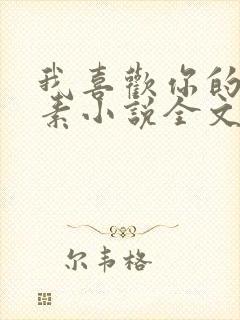 我喜歡你的
素小說全文
尔韦格